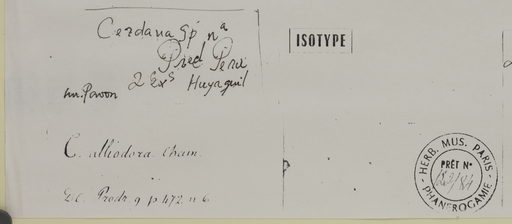 Cerdana Sp nª
Pred Peru
2 Exˢ Huyaquil
m. Pavon
C. alliodora Cham.
D.C. Prodr. 9 p 472 n 6
ISOTYPE
HERB. MUS. PARIS
PRÊT Nº
PHANEROGAMIE